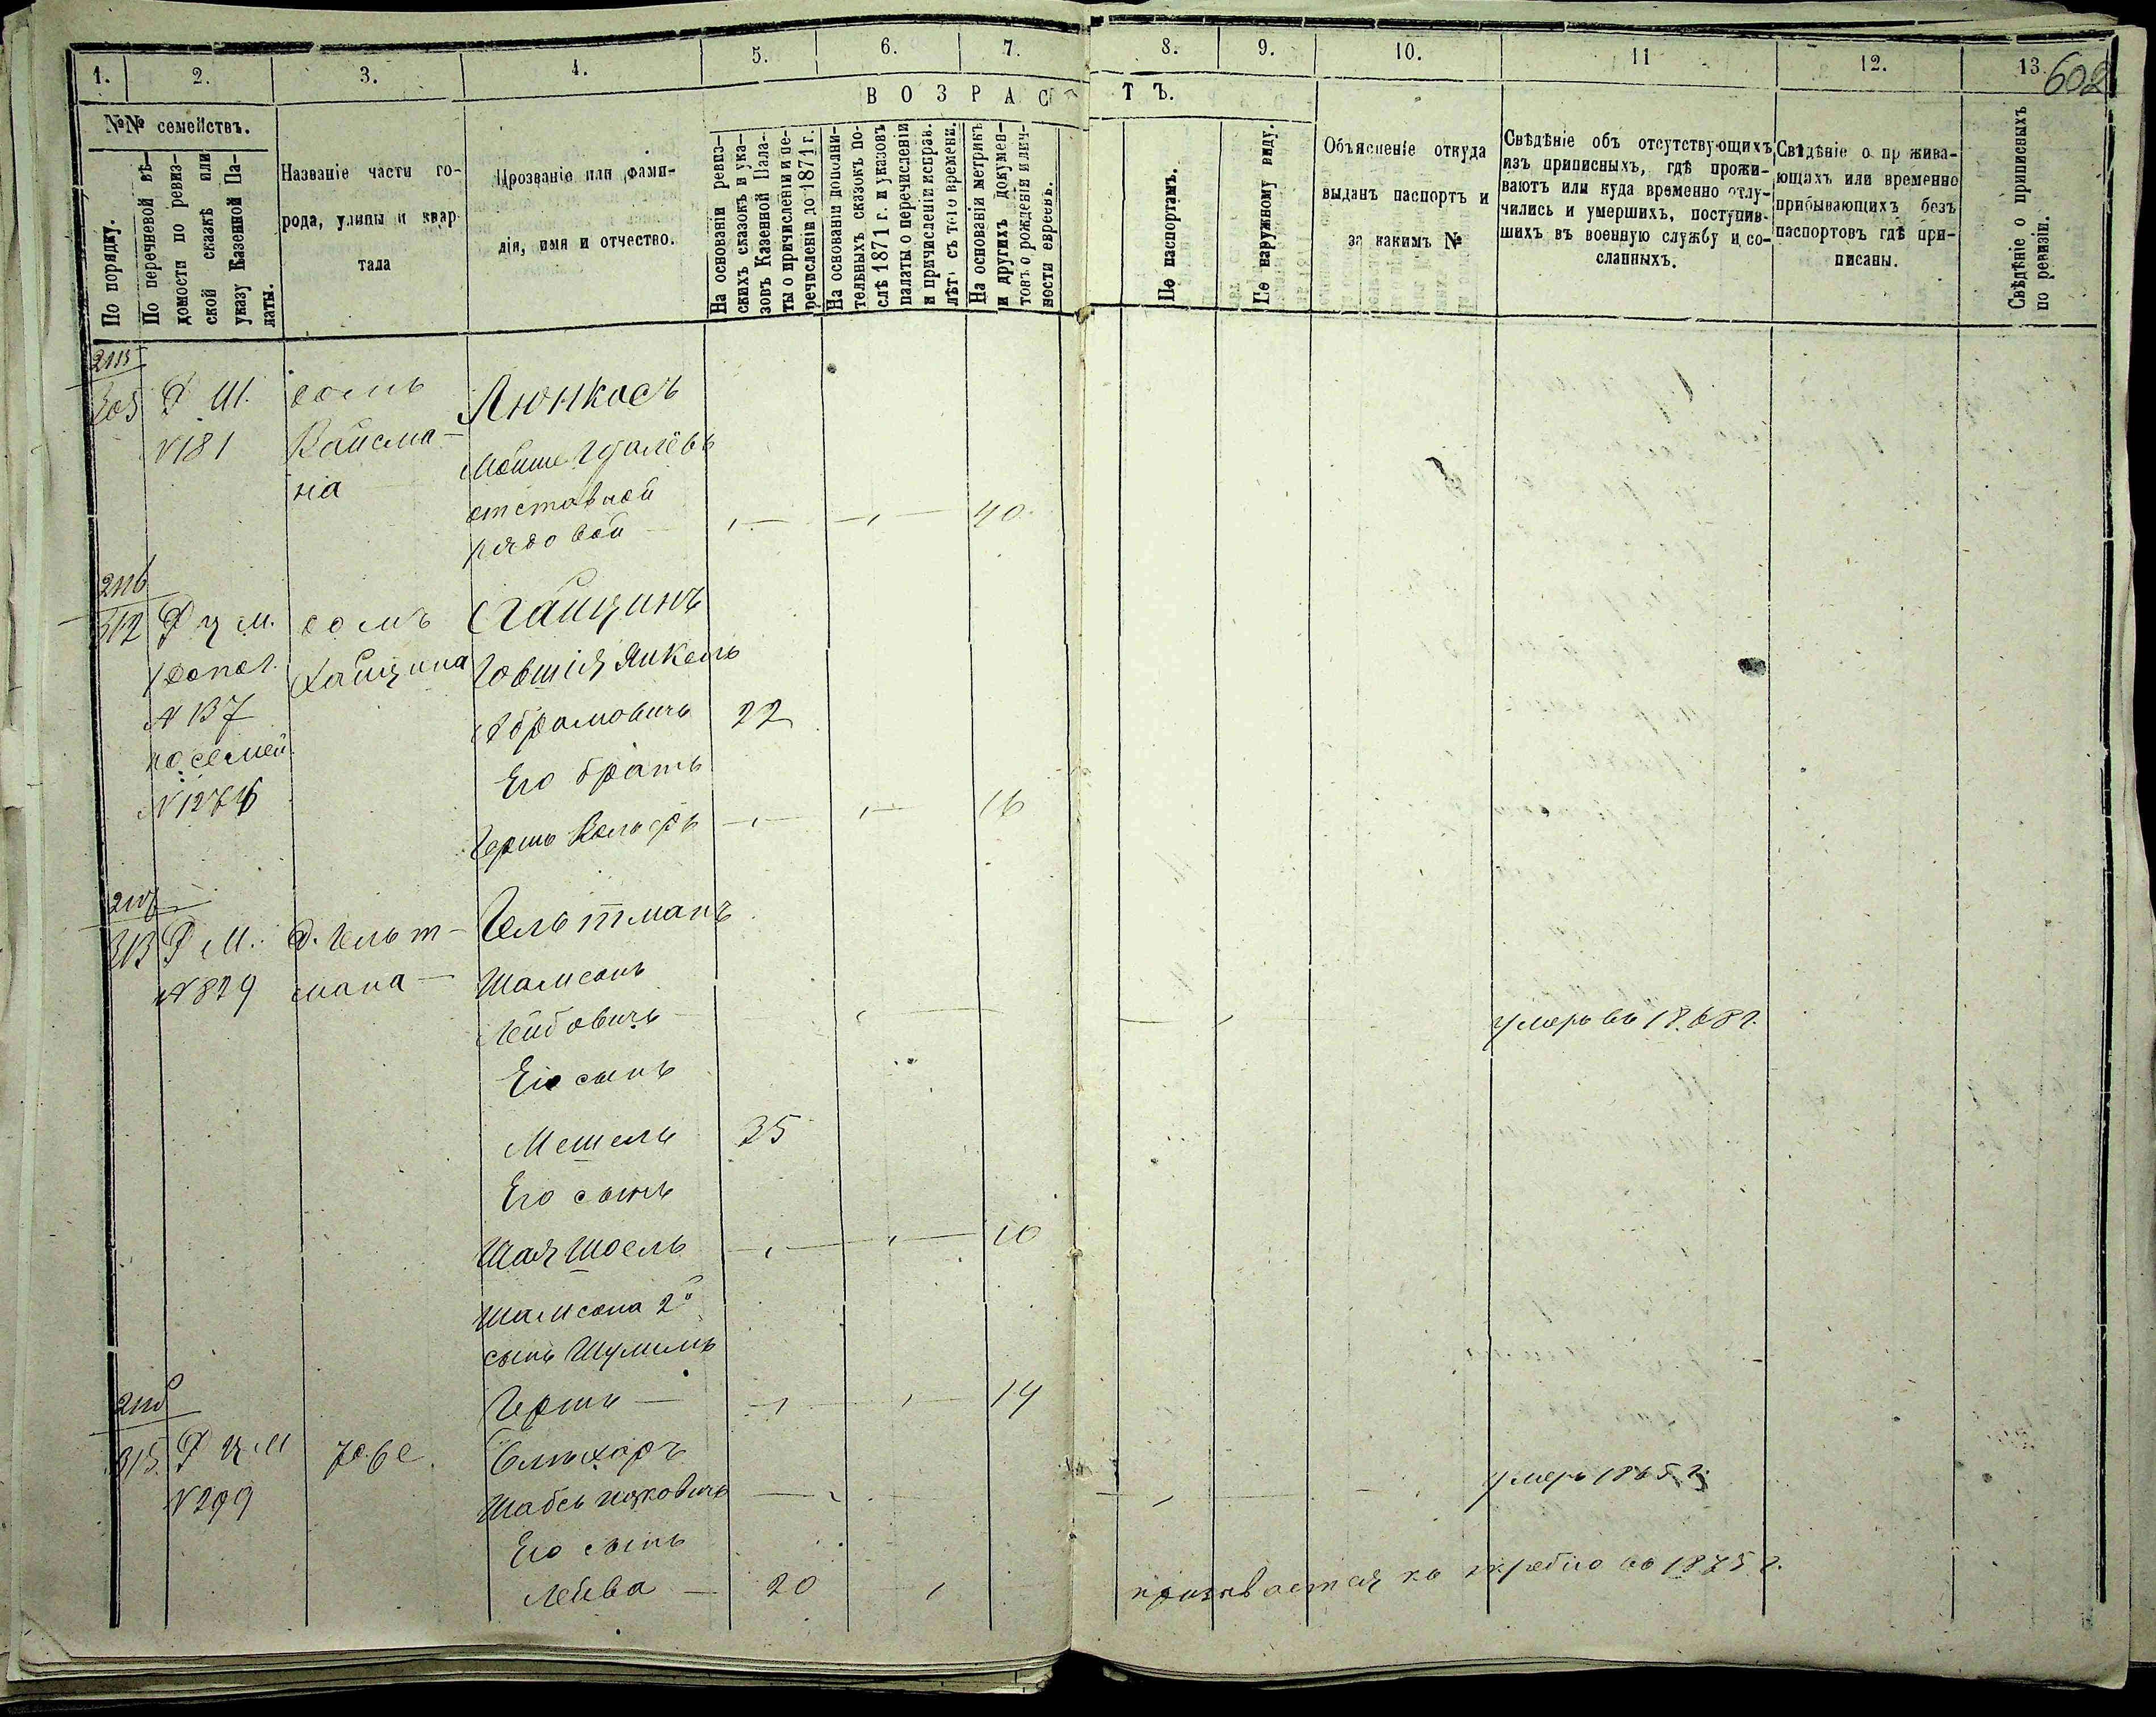 1. 2. 3. 4. 5. 6. 7. 8. 9. 10. 11 12. 13.
602
ВОЗРАСТЪ.
№№ семействъ.
По порядку.
По перечневой вѣ-
домости по ревиз-
ской сказкѣ или
указу Казенной Па-
латы.
Названіе части го-
рода, улицы и квар-
тала
Прозваніе или фами-
лія, имя и отчество.
На основаніи ревиз-
скихъ сказокъ и ука-
зовъ Казенной Пала-
ты о причисленіи и пе-
речисленіи до 1871 г.
На основаніи дополни-
тельныхъ сказокъ по-
слѣ 1871 г. и указовъ
палаты о перечисленіи
и причисленіи исправ.
лѣтъ съ того времени.
На основаніи метрикъ
и другихъ докумен-
товъ о рожденіи и лич-
ности евреевъ.
По паспортамъ.
По наружному виду.
Объясненіе откуда
выданъ паспортъ и
за какимъ №
Свѣдѣніе объ отсутствующихъ
изъ приписныхъ, гдѣ прожи-
ваютъ или куда временно отлу-
чились и умершихъ, поступив-
шихъ въ военную службу и со-
сланныхъ.
Свѣдѣніе о прожива-
ющихъ или временно
прибывающихъ безъ
паспортовъ гдѣ при-
писаны.
Свѣдѣніе о приписныхъ
по ревизіи.
305 Р М. домъ Люнкасъ
№181 Вайсма-
на
отставной
рядовой — 40
2116
312 Р ц м. домъ
допол. Хайцина Іовшія Янкель
№ 137 Абрамовичъ 22
по семей.
Его братъ
Гершъ Вольфъ 16
2117
313 Р М. д. Гельт- Гельтманъ
№829 мана — Шамсонъ
Лейбовичъ — умеръ въ 1868 г.
Его сынъ
Мешель 35
Его сынъ
Шая Шоель 10
Шамсона 2й
сынъ Шулимъ
Гершъ — 14
2118
315 Р ц м
№299 Шабсъ Ицковичъ умеръ 1865 г.
Его сынъ
Лейба — 20 призывается къ жребію въ 1875 г.